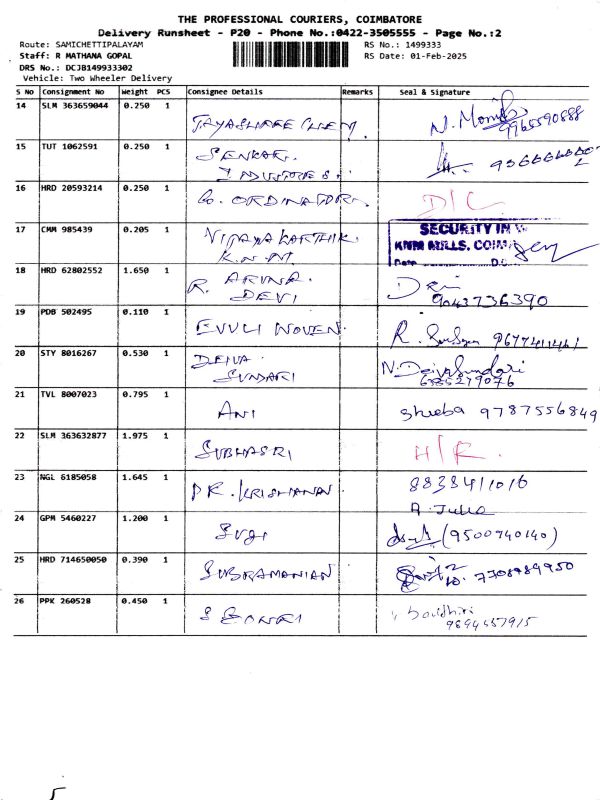 THE PROFESSIONAL COURIERS, COIMBATORE
Delivery Runsheet - P20 - Phone No.:0422-3505555 - Page No.:2
Route: SAMICHETTIPALAYAM RS No.: 1499333
Staff: R MATHANA GOPAL RS Date: 01-Feb-2025
DRS No.: DCJB149933302
Vehicle: Two Wheeler Delivery
S No Consignment No Weight PCS Consignee Details Remarks Seal & Signature
14 SLM 363659044 0.250 1
9965590888
15 TUT 1062591 0.250 1
16 HRD 20593214 0.250 1 Co. ORDINATOR. D/C
17 CMM 985439 0.205 1 VIJAYA KARTHIK. SECURITY IN
K.N.M. KNM MILLS, COIM
Date D.C.
18 HRD 62802552 1.650 1 R. ARUNA. Devi
DEVI 9043736390
19 PDB 502495 0.110 1 EVVLI WOVEN. R.
20 STY 8016267 0.530 1 DEIVA. N. DeivaSundari
SUNDARI 6385279076
21 TVL 8007023 0.795 1 ANI Sheeba 9787556849
22 SLM 363632877 1.975 1 SUBHASRI H/R.
23 NGL 6185058 1.645 1 DR. KRISHANAN 8838411016
A. Julie
24 GPM 5460227 1.200 1 SUJI (9500740140)
25 HRD 714650050 0.390 1 SUBRAMANIAN 7708989950
26 PPK 260528 0.450 1 S
9894557915